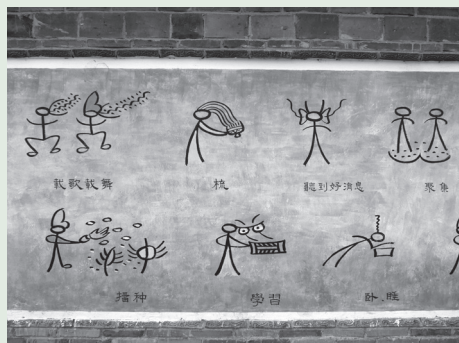 載歌載舞
梳
聽到好消息
聚集
播种
學習
卧睡